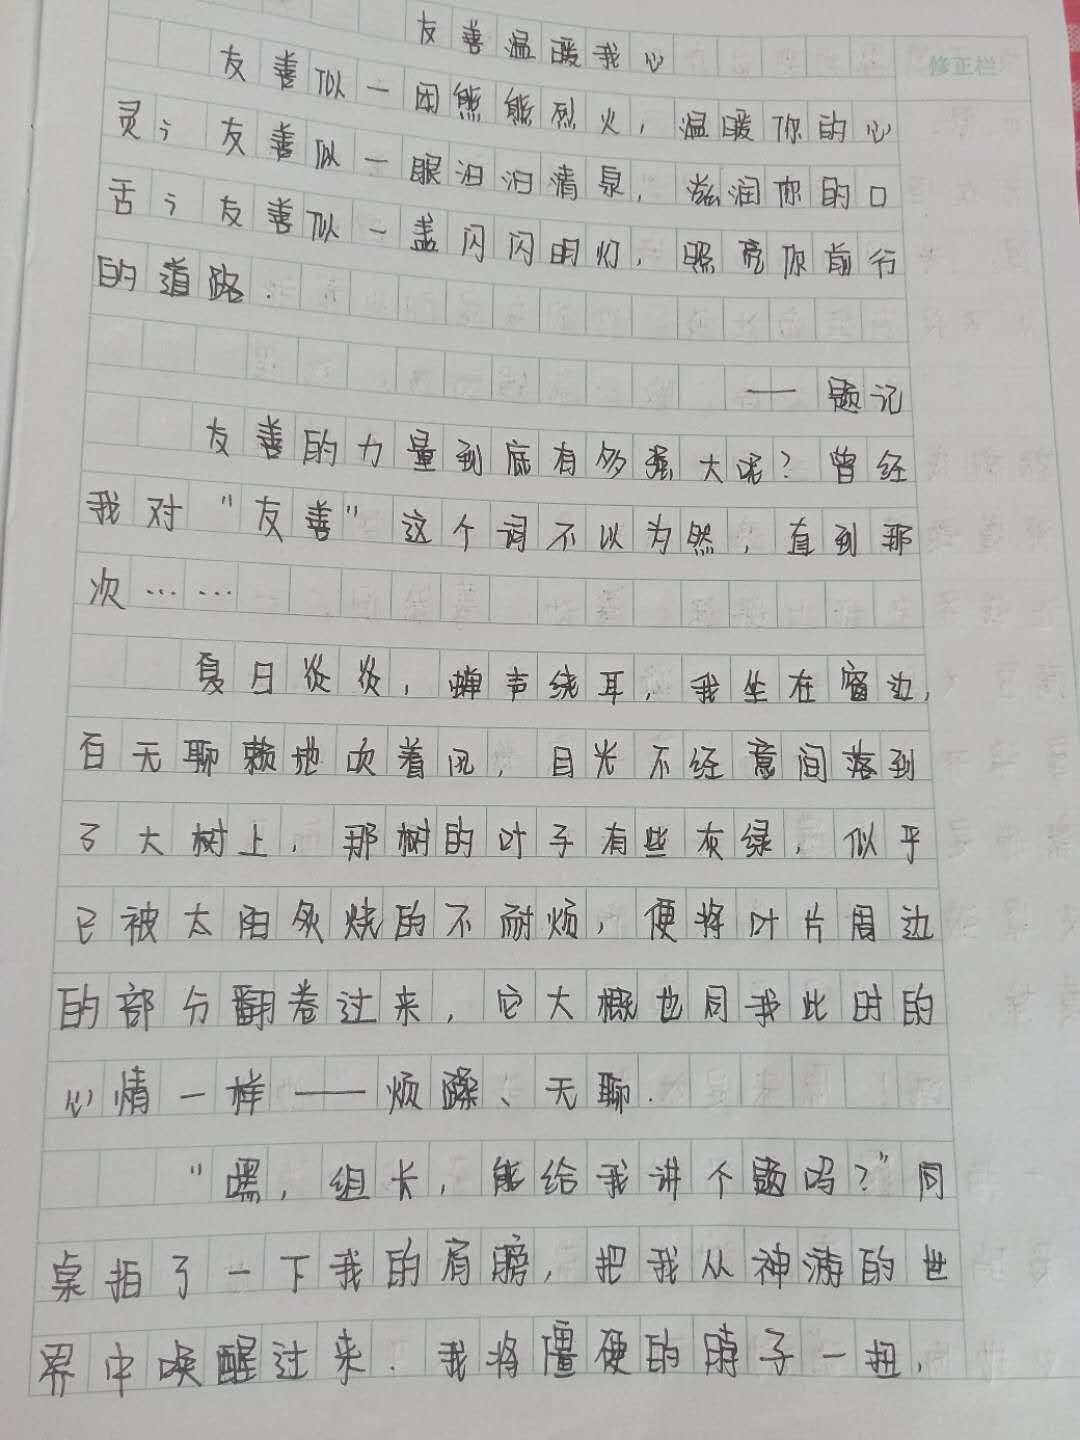 友善温暖我心
修正栏
友善似一团熊熊烈火，温暖你的心
灵；友善似一眼汩汩清泉，滋润你的口
舌；友善似一盏闪闪明灯，照亮你前行
的道路.
——题记
友善的力量到底有多强大呢？曾经
我对“友善”这个词不以为然，直到那
次……
夏日炎炎，蝉声绕耳，我坐在窗边，
百无聊赖地吹着风，目光不经意间落到
了大树上，那树的叶子有些灰绿，似乎
已被太阳炙烧的不耐烦，便将叶片周边
的部分翻卷过来，它大概也同我此时的
心情一样——烦躁、无聊.
“嘿，组长，能给我讲个题吗？”同
桌拍了一下我的肩膀，把我从神游的世
界中唤醒过来.我将僵硬的脖子一扭，